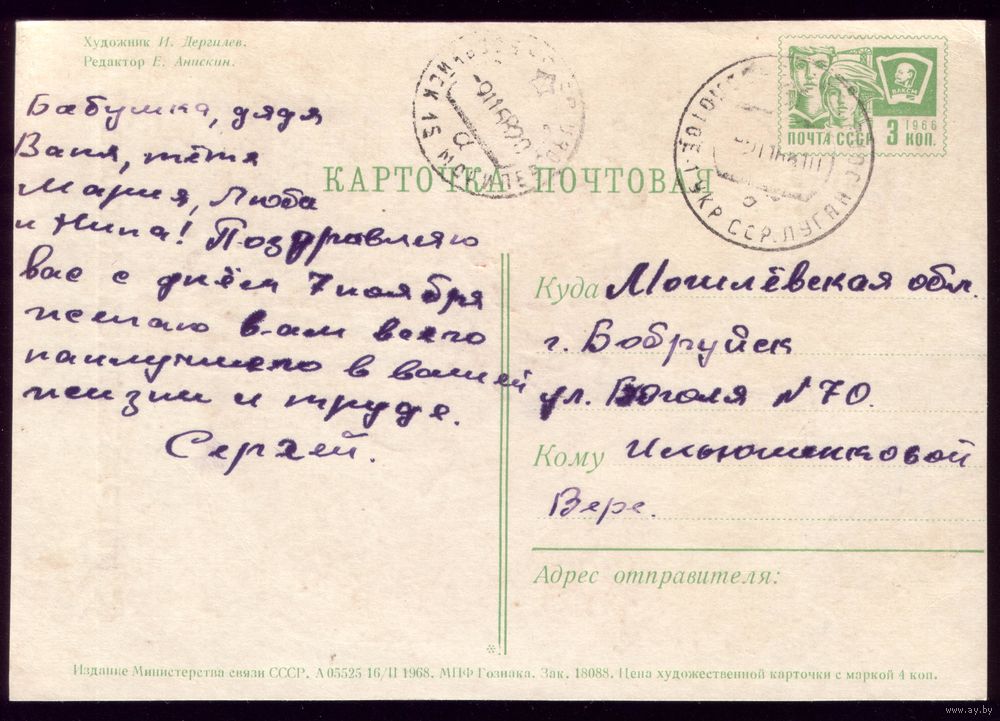 Художник И. Дергилев.
Редактор Е. Анискин.
Бабушка, дядя
Ваня, тётя
Мария, Люба
и Нина! Поздравляю
вас с днём 7 ноября
желаю вам всего
наилучшего в вашей
жизни и труде.
Сергей.
ВЛКСМ
1966
ПОЧТА СССР
3 КОП.
УКР ССР. ЛУГАН
КАРТОЧКА ПОЧТОВАЯ
Куда Могилёвская обл.
г. Бобруйск
ул. Гоголя N 70.
Кому Ильюшенковой
Вере.
Адрес отправителя:
Издание Министерства связи СССР. А 05525 16/II 1968. МПФ Гознака. Зак. 18088. Цена художественной карточки с маркой 4 коп.
www.ay.by